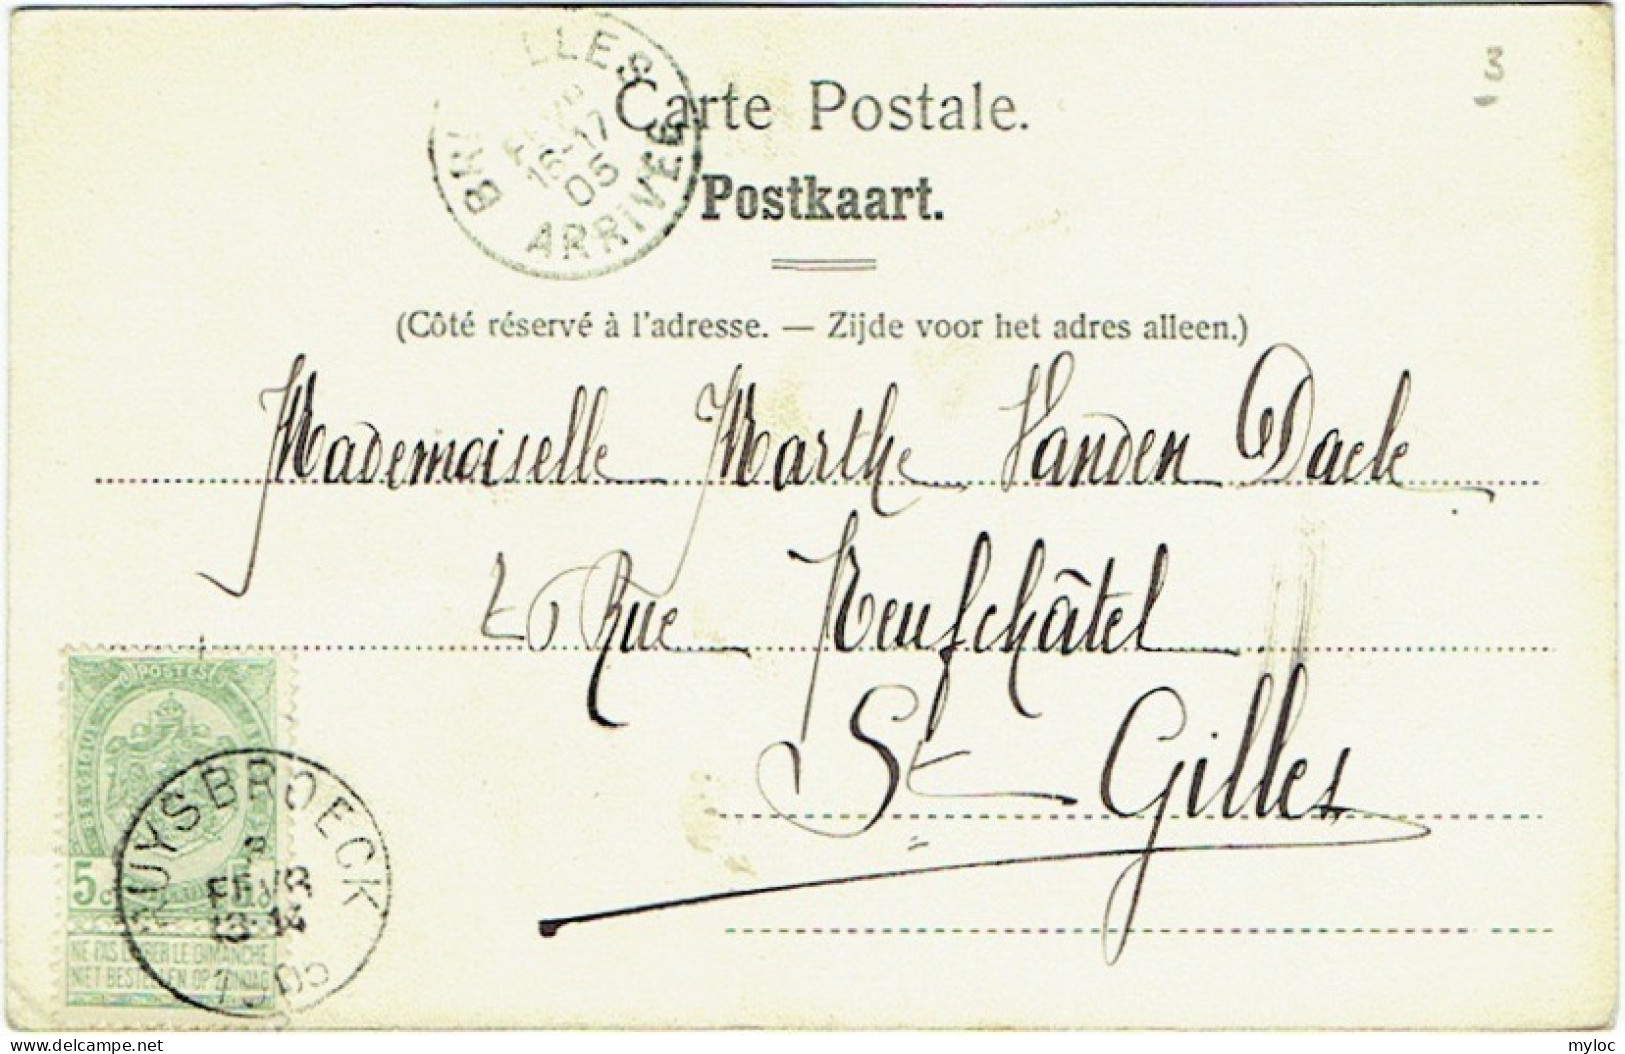 3
Carte Postale.
Postkaart.
BRUXELLES
16-17
05
ARRIVEE
(Côté réservé à l'adresse. — Zijde voor het adres alleen.)
Mademoiselle Marthe Vanden Daele
Rue Neufchâtel
St Gilles
POSTES
BELGIQUE
5c 5c
NE PAS LIVRER LE DIMANCHE
NIET BESTELLEN OP ZONDAG
RUYSBROECK
FEVR
13-14
1905
delcampe.net
myloc